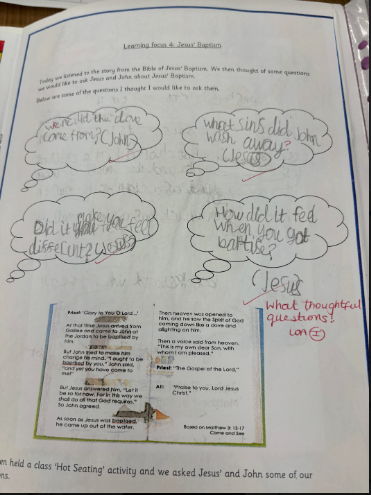 Learning focus 4: Jesus' Baptism
Today we listened to the story from the Bible of Jesus' Baptism. We then thought of some questions
we would like to ask Jesus and John about Jesus' Baptism.
Below are some of the questions I thought I would like to ask them.
did the dove
come from? (John)
what sins did John
wash away?
(Jesus)
Did it make you feel
different? (Jesus)
How did it fed
when you got
baptise?
(Jesus
What thoughtful
questions!
Priest: "Glory to You O Lord..."
At that time Jesus arrived from
Galilee and came to John at
the Jordan to be baptised by
him.
But John tried to make him
change his mind. "I ought to be
baptised by you," John said,
"and yet you have come to
me!"
But Jesus answered him, "Let it
be so for now. For in this way we
shall do all that God requires."
So John agreed.
As soon as Jesus was baptised,
he came up out of the water.
Then heaven was opened to
him, and he saw the Spirit of God
coming down like a dove and
alighting on him.
Then a voice said from heaven,
"This is my own dear Son, with
whom I am pleased."
Priest: "The Gospel of the Lord,"
All: "Praise to you, Lord Jesus
Christ."
Based on Matthew 3: 13-17
Come and See
en held a class 'Hot Seating' activity and we asked Jesus' and John some of our
ns.